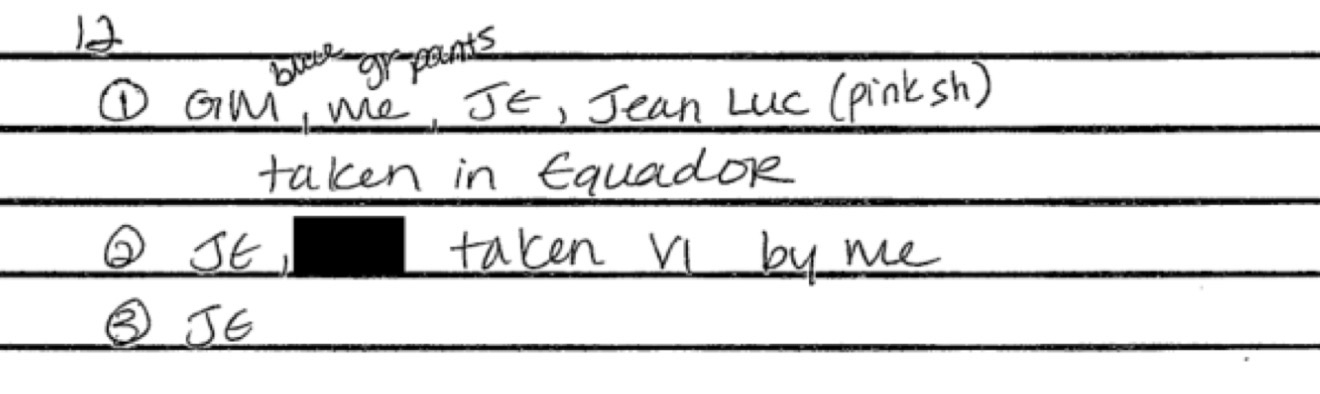 12
blue gr pants
① GM, me, JE, Jean Luc (pink sh)
taken in Equador
② JE, taken VI by me
③ JE